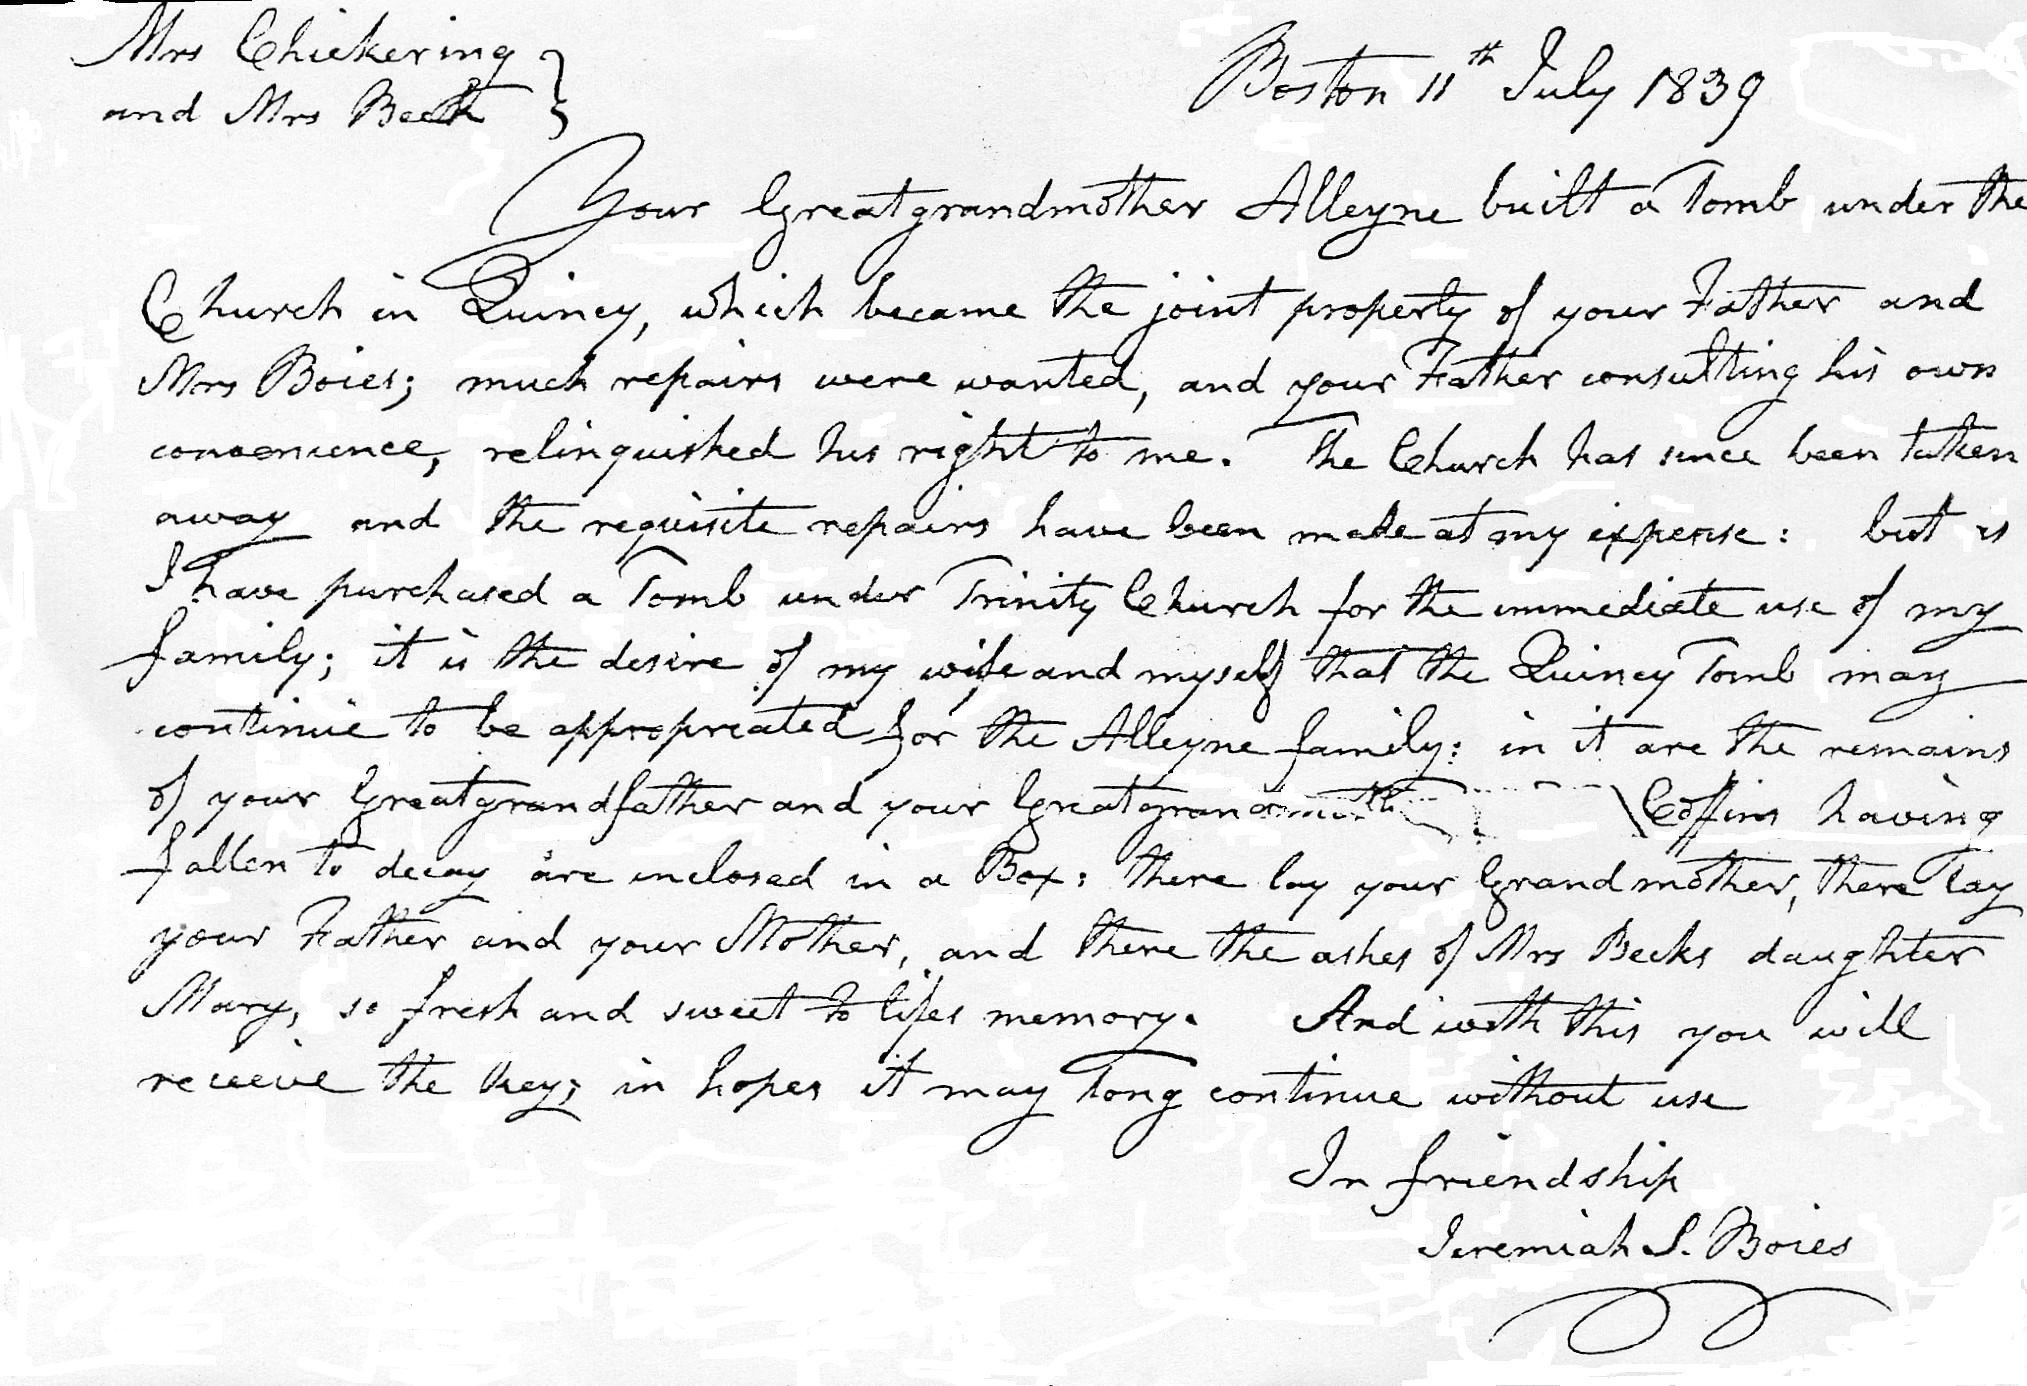 Mrs Chickering
and Mrs Beck
Boston 11th July 1839
Your Greatgrandmother Alleyne built a Tomb under the
Church in Quincy, which became the joint property of your Father and
Mrs Boies; much repairs were wanted, and your Father consulting his own
convenience, relinquished his right to me. The Church has since been taken
away and the requisite repairs have been made at my expense: but as
I have purchased a Tomb under Trinity Church for the immediate use of my
family; it is the desire of my wife and myself that the Quincy Tomb may
continue to be appropriated for the Alleyne family: in it are the remains
of your Greatgrandfather and your Coffins having
fallen to decay are inclosed in a Box: there lay your Grandmother, there lay
your Father and your Mother, and there the ashes of Mrs Becks daughter
Mary, so fresh and sweet to lifes memory. And with this you will
receive the key; in hopes it may long continue without use
In friendship
Jeremiah S. Boies